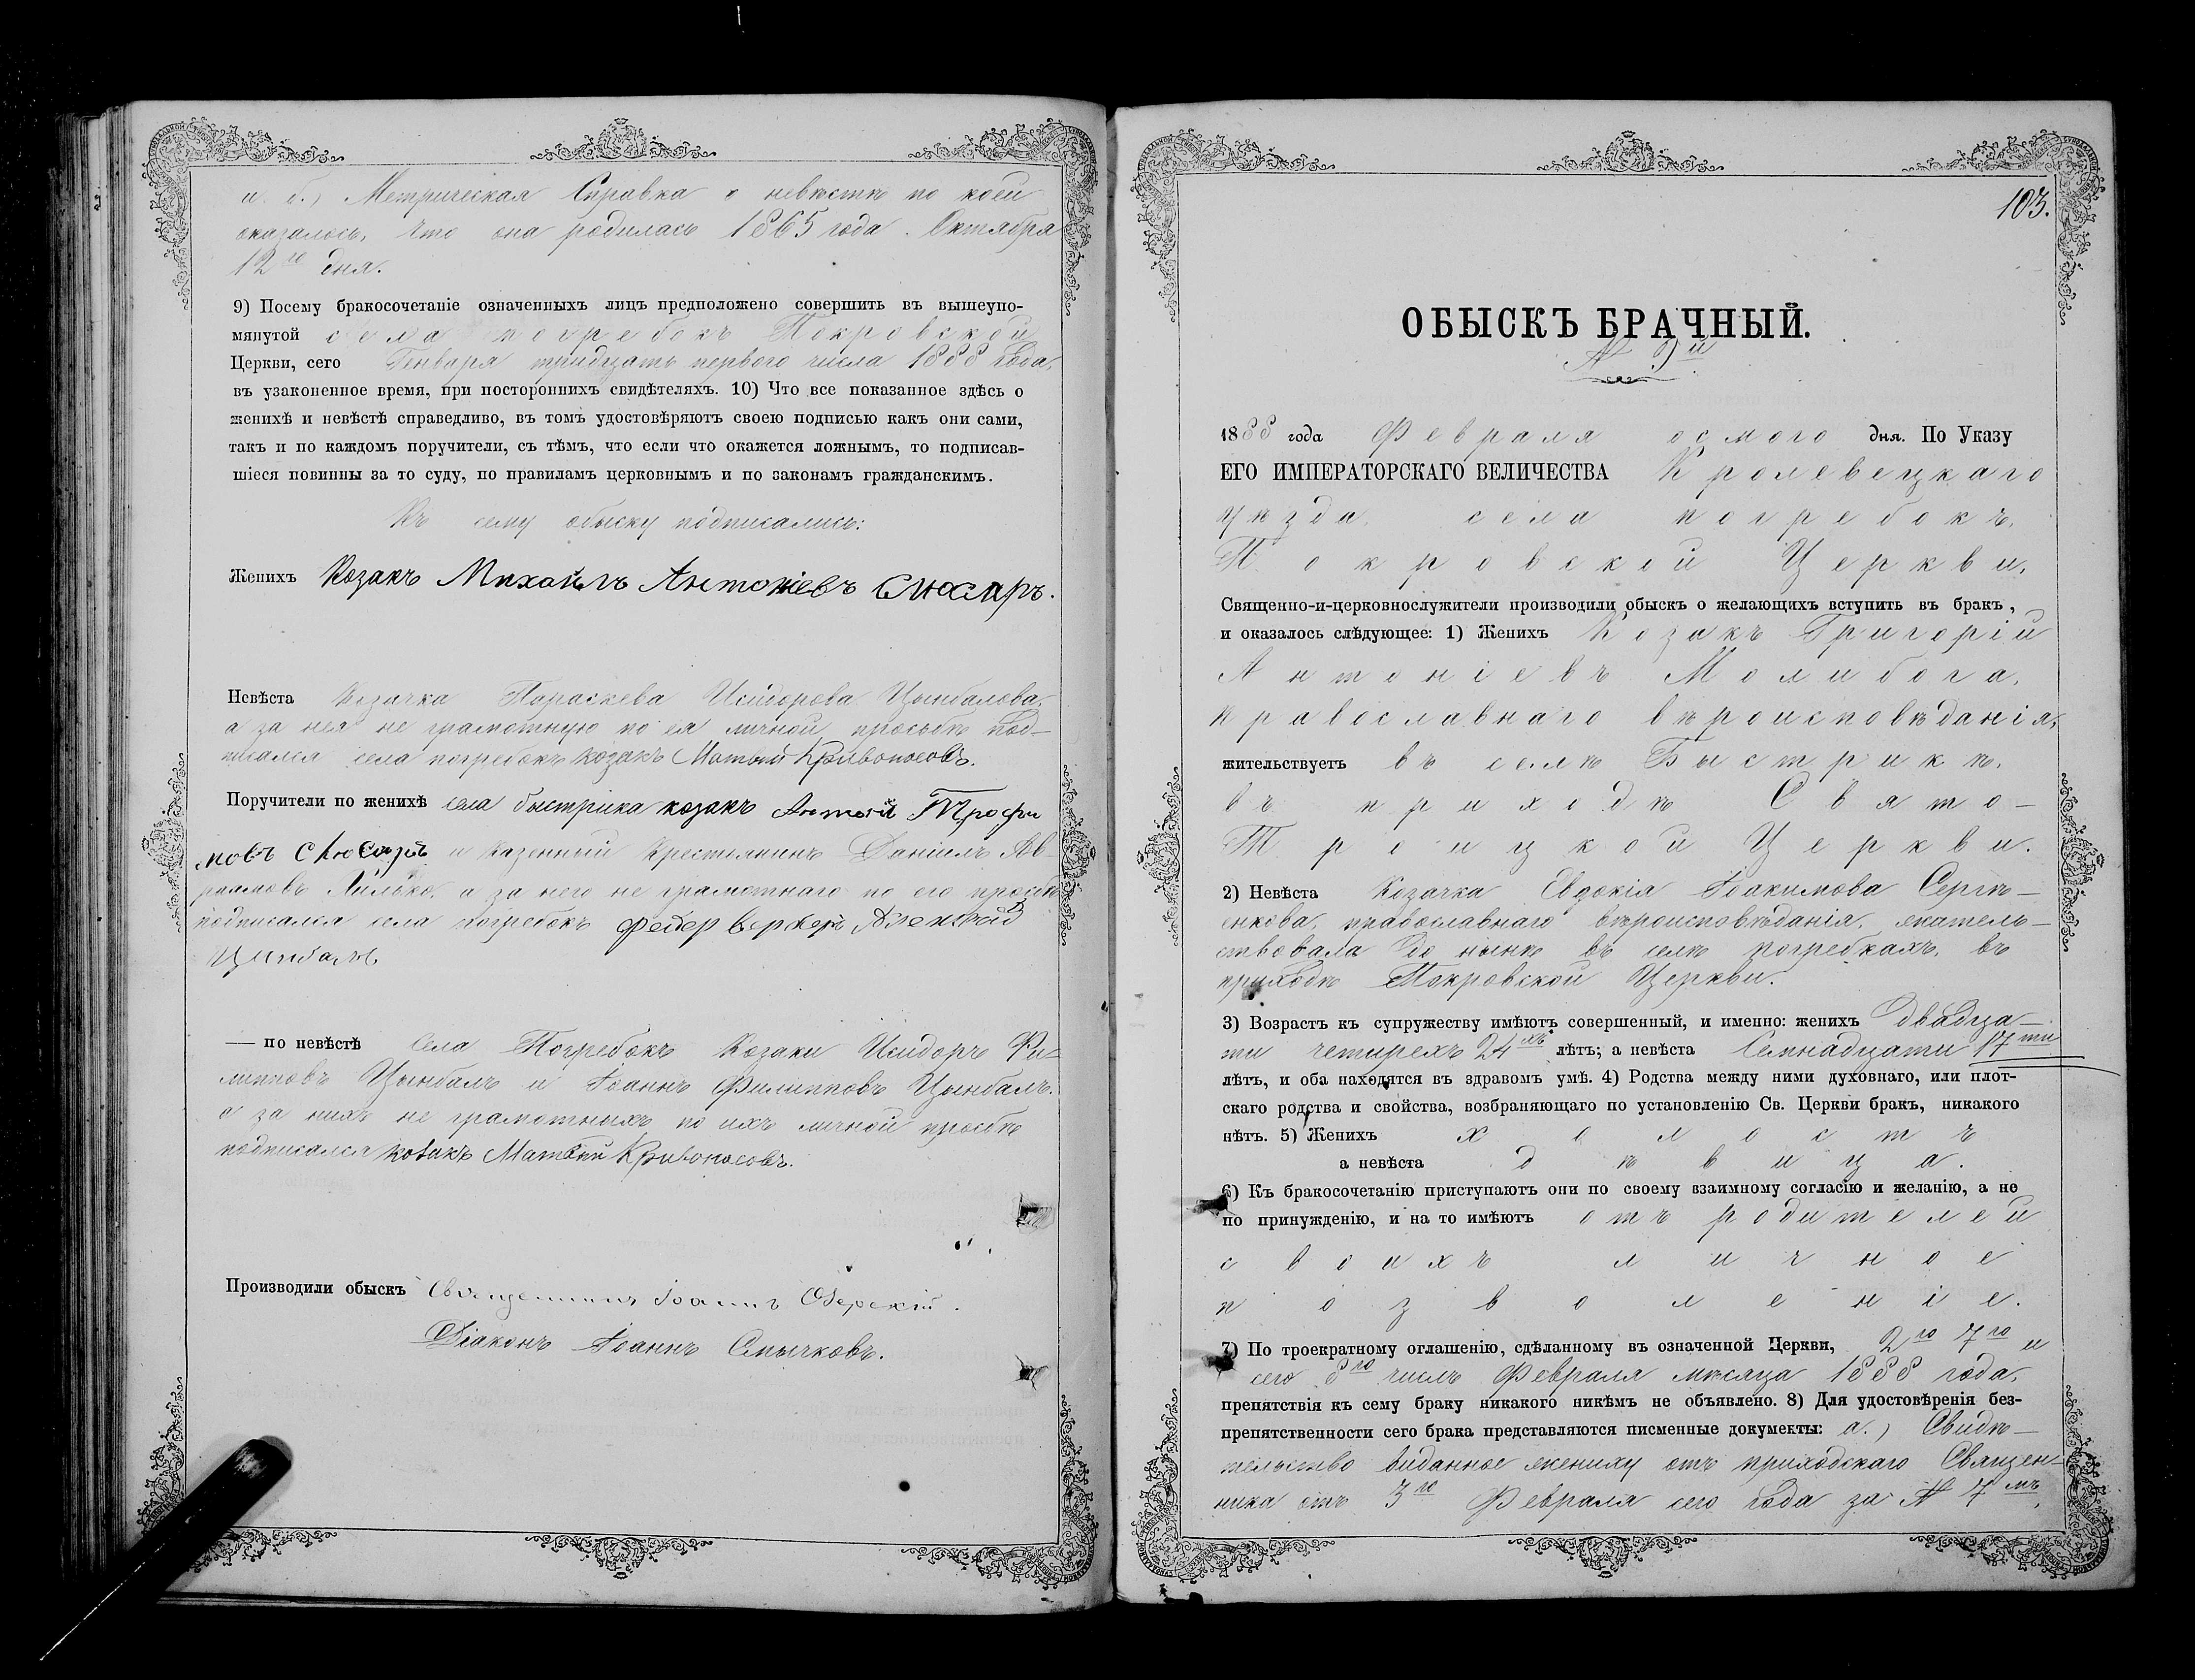 и б.) Метрическая Справка о невѣстѣ по коей
оказалось, что она родилась 1865 года. Октября
12го дня.
9) Посему бракосочетаніе означенныхъ лицъ предположено совершить въ вышеупо-
мянутой села погребокъ Покровской
Церкви, сего Генваря тридцать перваго числа 1888 года,
въ узаконенное время, при постороннихъ свидѣтеляхъ. 10) Что все показанное здѣсь о
женихѣ и невѣстѣ справедливо, въ томъ удостовѣряютъ своею подписью какъ они сами,
такъ и по каждомъ поручители, съ тѣмъ, что если что окажется ложнымъ, то подписав-
шіеся повинны за то суду, по правиламъ церковнымъ и по законамъ гражданскимъ.
Къ сему обыску подписались:
Женихъ Козакъ Михаилъ Антоніевъ Слюсаръ.
Невѣста Козачка Параскева Исидорова Цынбалова,
а за нея не грамотную по ея личной просьбѣ под-
писался села погребокъ козакъ Матвѣй Кривоносовъ.
Поручители по женихѣ села быстрика козакъ Антоній Трофи
мовъ Слюсаръ и казенный Крестьянинъ Даніилъ Ав-
раамовъ а за него не грамотнаго по его просьбѣ
подписался села погребокъ Алексѣй
Цинбалъ
— по невѣстѣ Села Погребокъ Козаки Исидоръ Фи-
липповъ Цынбалъ и Іоаннъ Филипповъ Цынбалъ.
а за нихъ не грамотныхъ по ихъ личной просбѣ
подписался козакъ Матвѣй Кривоносовъ.
Производили обыскъ Священникъ Іоаннъ
Діаконъ Іоаннъ Смычковъ.
103.
ОБЫСКЪ БРАЧНЫЙ.
№ 9й
1888 года Февраля осмого дня. По Указу
ЕГО ИМПЕРАТОРСКАГО ВЕЛИЧЕСТВА Кролевецкаго
уѣзда, села погребокъ,
Покровской Церкви,
Священно-и-церковнослужители производили обыскъ о желающихъ вступить въ бракъ,
и оказалось слѣдующее: 1) Женихъ Козакъ Григорій
Антоніевъ Молибога,
православнаго вѣроисповѣданія,
жительствуетъ въ селѣ Быстрикѣ,
въ приходѣ Свято-
Троицкой Церкви.
2) Невѣста Козачка Евдокія Іоакимова Сергѣ-
енкова, православнаго вѣроисповѣданія, жител-
ствовала до нынѣ въ селѣ погребкахъ, въ
приходѣ Покровской Церкви.
3) Возрастъ къ супружеству имѣютъ совершенный, и именно: женихъ двадца-
ти четирехъ 24хъ лѣтъ; а невѣста Семнадцати 17ти
лѣтъ, и оба находятся въ здравомъ умѣ. 4) Родства между ними духовнаго, или плот-
скаго родства и свойства, возбраняющаго по установленію Св. Церкви бракъ, никакого
нѣтъ. 5) Женихъ холостъ
а невѣста дѣвица.
6) Къ бракосочетанію приступаютъ они по своему взаимному согласію и желанію, а не
по принужденію, и на то имѣютъ отъ родителей
своихъ личное
позволеніе.
7) По троекратному оглашенію, сдѣланному въ означенной Церкви, 2го 7го и
сего 8го числъ Февраля мѣсяца 1888 года,
препятствія къ сему браку никакого никѣмъ не объявлено. 8) Для удостовѣренія без-
препятственности сего брака представляются писменные документы: а.) Свидѣ-
тельство виданное жениху отъ приходскаго Священ-
ника отъ 3го Февраля сего года за № 7мъ,